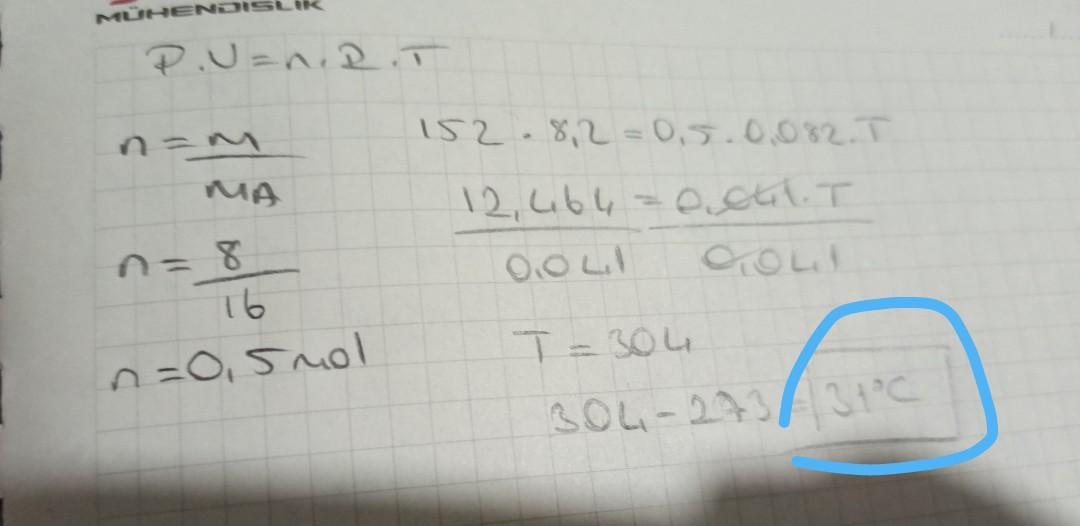 MÜHENDİSLİK
P.V=n.R.T
n = m / MA
n = 8 / 16
n = 0,5 mol
152 . 8,2 = 0,5 . 0,082 . T
12,464 / 0.041 = 0,041 . T / 0,041
T = 304
304 - 273 = 31°C